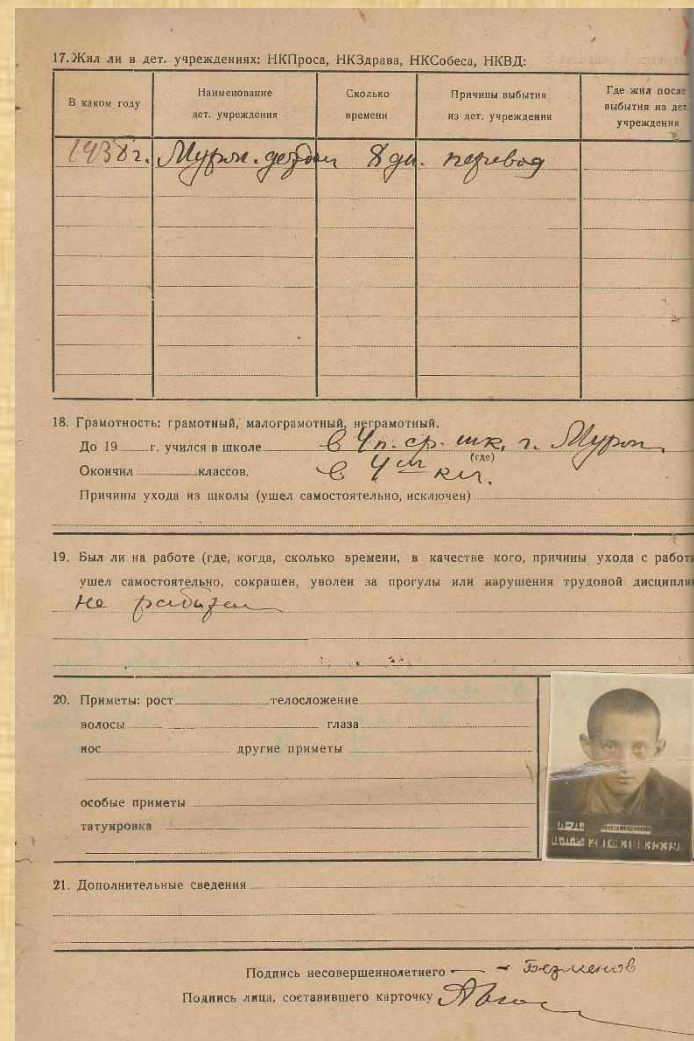 17. Жил ли в дет. учреждениях: НКПроса, НКЗдрава, НКСобеса, НКВД:
В каком году
Наименование
дет. учреждения
Сколько
времени
Причины выбытия
из дет. учреждения
Где жил после
выбытия из дет.
учреждения
1938 г. Муром. детдом 8 дн. перевод
18. Грамотность: грамотный, малограмотный, неграмотный.
До 19 г. учился в школе в 4 п. ср. шк. г. Муром
(где)
Окончил классов. в 4 ом кл.
Причины ухода из школы (ушел самостоятельно, исключен)
19. Был ли на работе (где, когда, сколько времени, в качестве кого, причины ухода с работ
ушел самостоятельно, сокращен, уволен за прогулы или нарушения трудовой дисципли
не работал
20. Приметы: рост телосложение
волосы глаза
нос другие приметы
особые приметы
татуировка
21. Дополнительные сведения
Подпись несовершеннолетнего Безменов
Подпись лица, составившего карточку